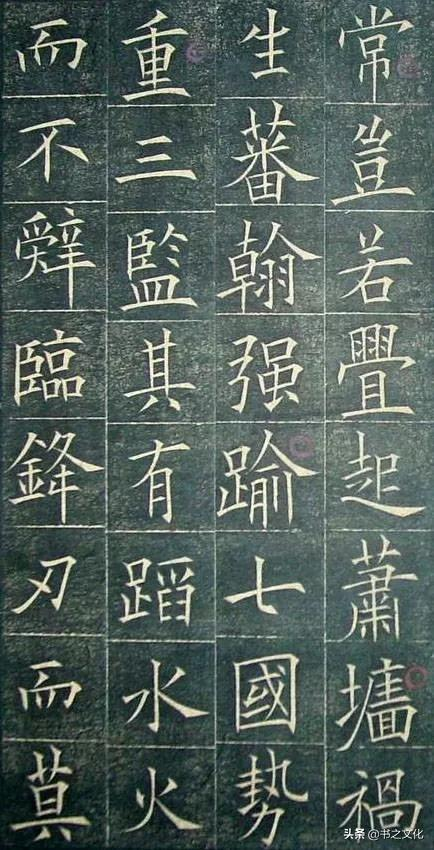 常豈若疊起蕭墻禍
生蕃翰强踰七國勢
重三監其有蹈水火
而不辤臨鋒刃而莫
头条 @书之文化